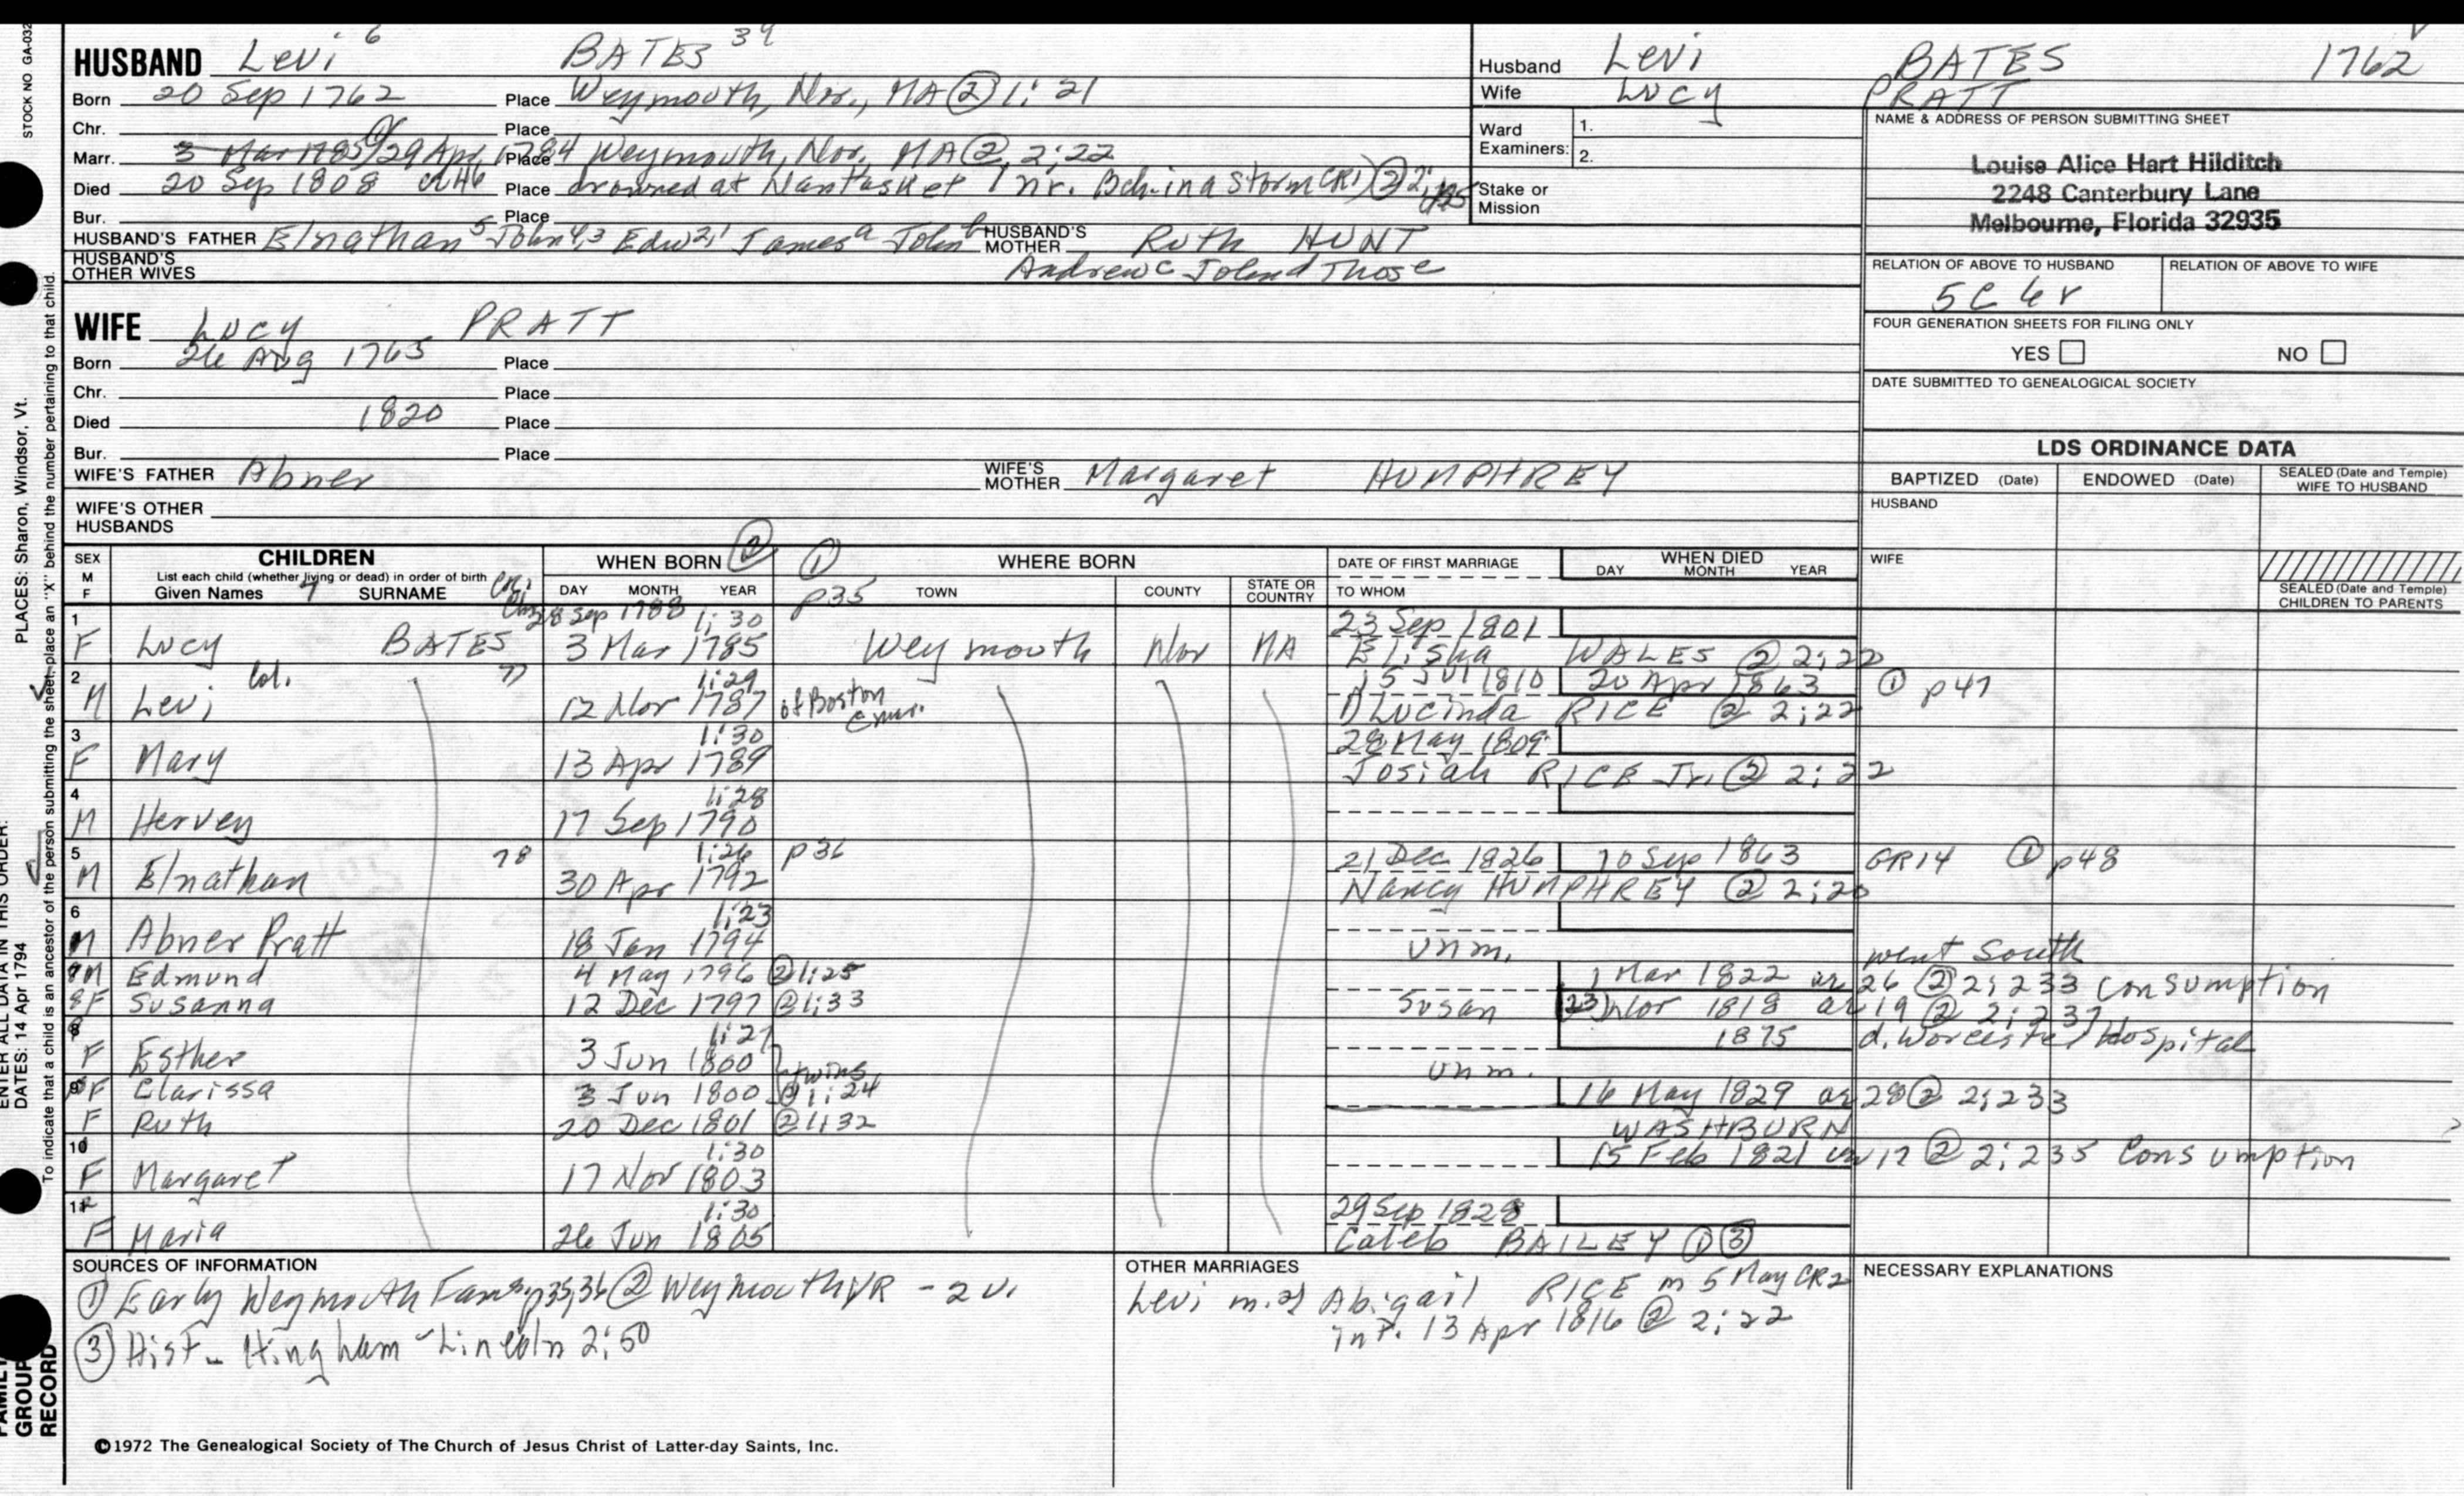 STOCK NO GA-032
PLACES: Sharon, Windsor, Vt.
ENTER ALL DATA IN THIS ORDER:
DATES: 14 Apr 1794
To indicate that a child is an ancestor of the person submitting the sheet, place an "X" behind the number pertaining to that child.
FAMILY GROUP RECORD
HUSBAND Levi 6 BATES 39
Born 20 Sep 1762 Place Weymouth, Nor., MA ② 1:21
Chr. Place
Marr. 3 Mar 1785 / 29 Apr 1784 Place Weymouth, Nor, MA ② 2:22
Died 20 Sep 1808 ae 46 Place drowned at Nantasket nr. Bch in a storm CR1 ②
Bur. Place
HUSBAND'S FATHER Elnathan 5 John 4,3 Edw 2,1 James a John b HUSBAND'S MOTHER Ruth HUNT
HUSBAND'S OTHER WIVES Andrew c John d Thos e
WIFE Lucy PRATT
Born 26 Aug 1765 Place
Chr. Place
Died 1820 Place
Bur. Place
WIFE'S FATHER Abner WIFE'S MOTHER Margaret HUMPHREY
WIFE'S OTHER HUSBANDS
Husband Levi BATES 1762
Wife Lucy PRATT
Ward Examiners: 1. 2.
Stake or Mission
NAME & ADDRESS OF PERSON SUBMITTING SHEET
Louise Alice Hart Hilditch
2248 Canterbury Lane
Melbourne, Florida 32935
RELATION OF ABOVE TO HUSBAND RELATION OF ABOVE TO WIFE
5C 6r
FOUR GENERATION SHEETS FOR FILING ONLY
YES NO
DATE SUBMITTED TO GENEALOGICAL SOCIETY
LDS ORDINANCE DATA
BAPTIZED (Date) ENDOWED (Date) SEALED (Date and Temple) WIFE TO HUSBAND
HUSBAND
WIFE
SEALED (Date and Temple) CHILDREN TO PARENTS
SEX M F CHILDREN WHEN BORN ② ① WHERE BORN DATE OF FIRST MARRIAGE WHEN DIED
List each child (whether living or dead) in order of birth
Given Names 7 SURNAME DAY MONTH YEAR p35 TOWN COUNTY STATE OR COUNTRY TO WHOM DAY MONTH YEAR
1 28 Sep 1788 1:30 23 Sep 1801
F Lucy BATES 3 Mar 1785 Weymouth Nor MA Elisha WALES ② 2:22
2 Col. 77 1:29 of Boston 15 Jul 1810 20 Apr 1863 ① p47
M Levi 12 Nov 1787 Lucinda RICE ② 2:22
3 1:30 28 May 1809
F Mary 13 Apr 1789 Josiah RICE Jr. ② 2:22
4 1:28
M Hervey 17 Sep 1790
5 78 1:26 p36 21 Dec 1826 10 Sep 1863 GR14 ① p48
M Elnathan 30 Apr 1792 Nancy HUMPHREY ② 2:20
6 1:23
M Abner Pratt 18 Jan 1794 unm. went South
M Edmund 4 May 1796 ② 1:25 1 Mar 1822 ae 26 ② 2:233 Consumption
8 F Susanna 12 Dec 1797 ② 1:33 Susan 23 Nov 1818 ae 19 ② 2:237
1:27 1875 d. Worcester Hospital
F Esther 3 Jun 1800 twins unm.
9 F Clarissa 3 Jun 1800 ② 1:24 16 May 1829 ae 28 ② 2:233
F Ruth 20 Dec 1801 ② 1:32 WASHBURN
10 1:30 15 Feb 1821 ae 17 ② 2:235 Consumption
F Margaret 17 Nov 1803
1:30 29 Sep 1828
F Maria 26 Jun 1805 Caleb BAILEY ① ③
SOURCES OF INFORMATION
① Early Weymouth Fams p35,36 ② Weymouth VR - 2 v.
③ Hist. Hingham - Lincoln 2:50
OTHER MARRIAGES
Levi m. 2) Abigail RICE m 5 May CR2
int. 13 Apr 1816 ② 2:22
NECESSARY EXPLANATIONS
©1972 The Genealogical Society of The Church of Jesus Christ of Latter-day Saints, Inc.